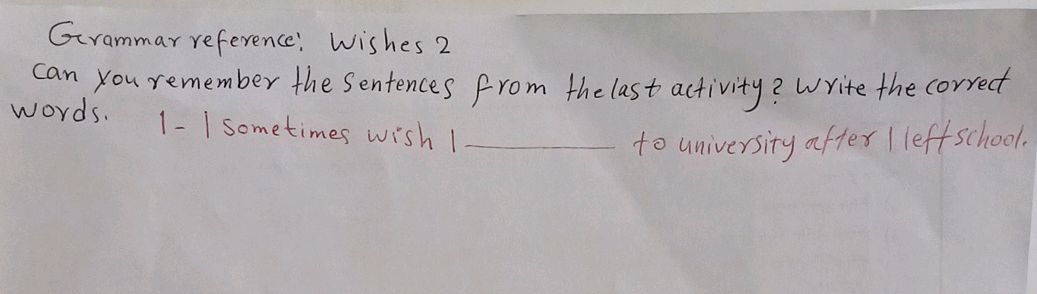 Grammar reference: Wishes 2
Can you remember the sentences from the last activity? Write the correct
words. 1- I sometimes wish I ________ to university after I left school.